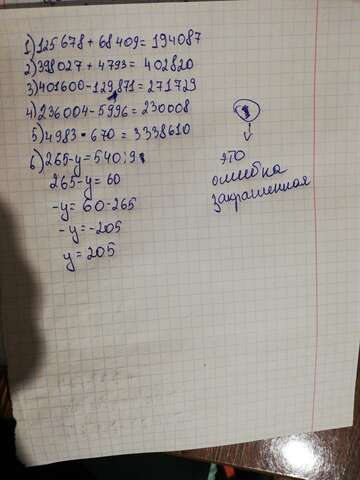 1) 125678 + 68409 = 194087
2) 398027 + 4793 = 402820
3) 401600 - 129871 = 271729
4) 236004 - 5996 = 230008
5) 4983 • 670 = 3338610
6) 265 - y = 540 : 9
265 - y = 60
-y = 60 - 265
-y = -205
y = 205
это
ошибка
закрашенная